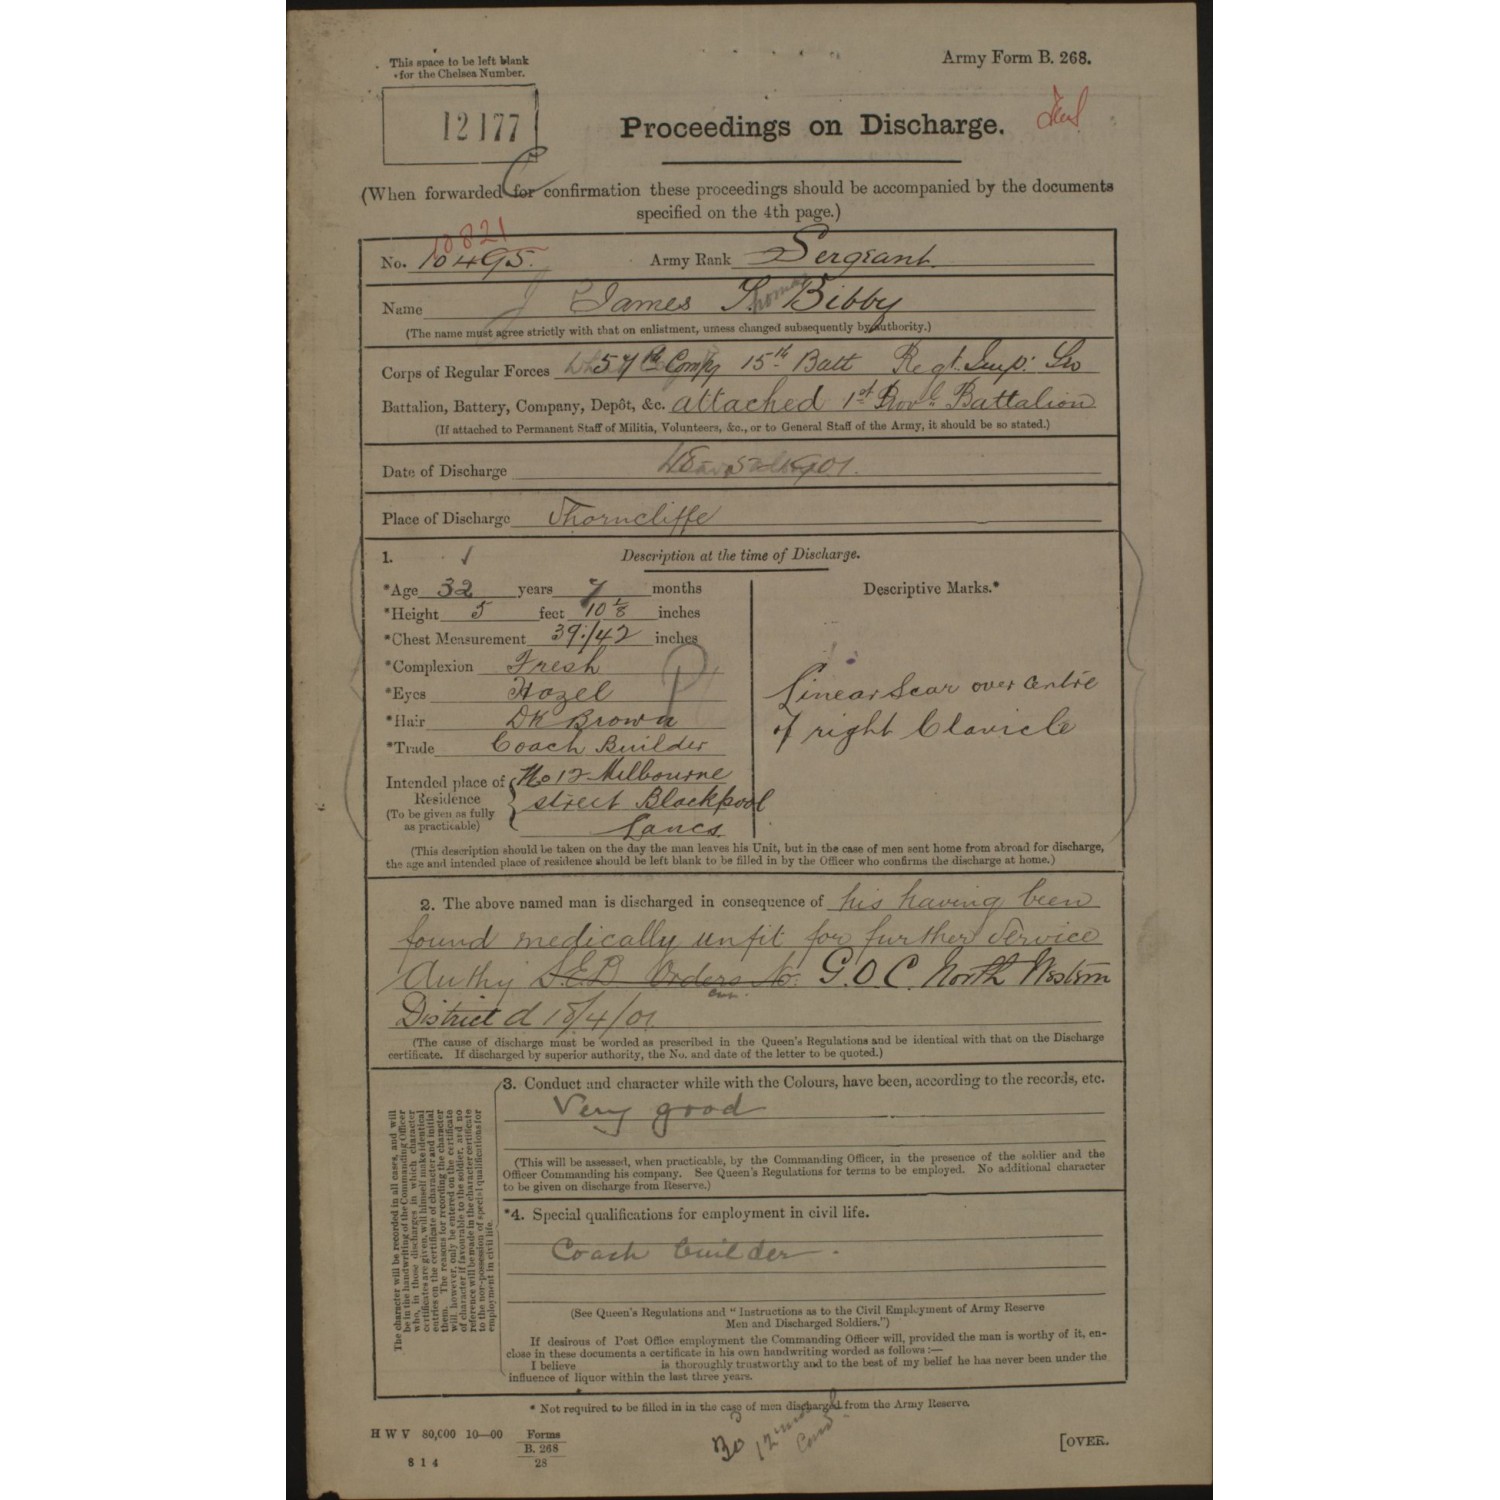 This space to be left blank
for the Chelsea Number.
Army Form B. 268.
12177
Proceedings on Discharge.
(When forwarded for confirmation these proceedings should be accompanied by the documents
specified on the 4th page.)
10821
No. 10495. Army Rank Sergeant.
Name James Thomas Bibby
(The name must agree strictly with that on enlistment, unless changed subsequently by authority.)
Corps of Regular Forces 57th Compy 15th Batt Regt. Imp:
Battalion, Battery, Company, Depôt, &c. attached 1st Battalion
(If attached to Permanent Staff of Militia, Volunteers, &c., or to General Staff of the Army, it should be so stated.)
Date of Discharge 1901.
Place of Discharge Thorncliffe
1. Description at the time of Discharge.
*Age 32 years 7 months
Descriptive Marks.*
*Height 5 feet 10 1/8 inches
*Chest Measurement 39./42 inches
*Complexion Fresh
*Eyes Hazel
Linear Scar over Centre
*Hair DK Brown
of right Clavicle
*Trade Coach Builder
Intended place of No 12 Melbourne
Residence street Blackpool
(To be given as fully
as practicable) Lancs
(This description should be taken on the day the man leaves his Unit, but in the case of men sent home from abroad for discharge,
the age and intended place of residence should be left blank to be filled in by the Officer who confirms the discharge at home.)
2. The above named man is discharged in consequence of his having been
found medically unfit for further Service
Authy S.E.D Orders No. G.O.C. North Western
District d 18/4/01
(The cause of discharge must be worded as prescribed in the Queen's Regulations and be identical with that on the Discharge
certificate. If discharged by superior authority, the No. and date of the letter to be quoted.)
The character will be recorded in all cases, and will
be in the handwriting of the Commanding Officer
who, in those discharges in which character
certificates are given, will himself make identical
entries on the certificate of character and initial
them. The reasons for recording the character
will however, only be entered on the certificate
of character if favourable to the soldier, and no
reference will be made in the character certificate
to the non-possession of special qualifications for
employment in civil life.
3. Conduct and character while with the Colours, have been, according to the records, etc.
Very good
(This will be assessed, when practicable, by the Commanding Officer, in the presence of the soldier and the
Officer Commanding his company. See Queen's Regulations for terms to be employed. No additional character
to be given on discharge from Reserve.)
*4. Special qualifications for employment in civil life.
Coach builder.
(See Queen's Regulations and "Instructions as to the Civil Employment of Army Reserve
Men and Discharged Soldiers.")
If desirous of Post Office employment the Commanding Officer will, provided the man is worthy of it, en-
close in these documents a certificate in his own handwriting worded as follows :—
I believe is thoroughly trustworthy and to the best of my belief he has never been under the
influence of liquor within the last three years.
* Not required to be filled in in the case of men discharged from the Army Reserve.
H W V 80,000 10—00 Forms
B. 268
28
8 1 4
12
[OVER.